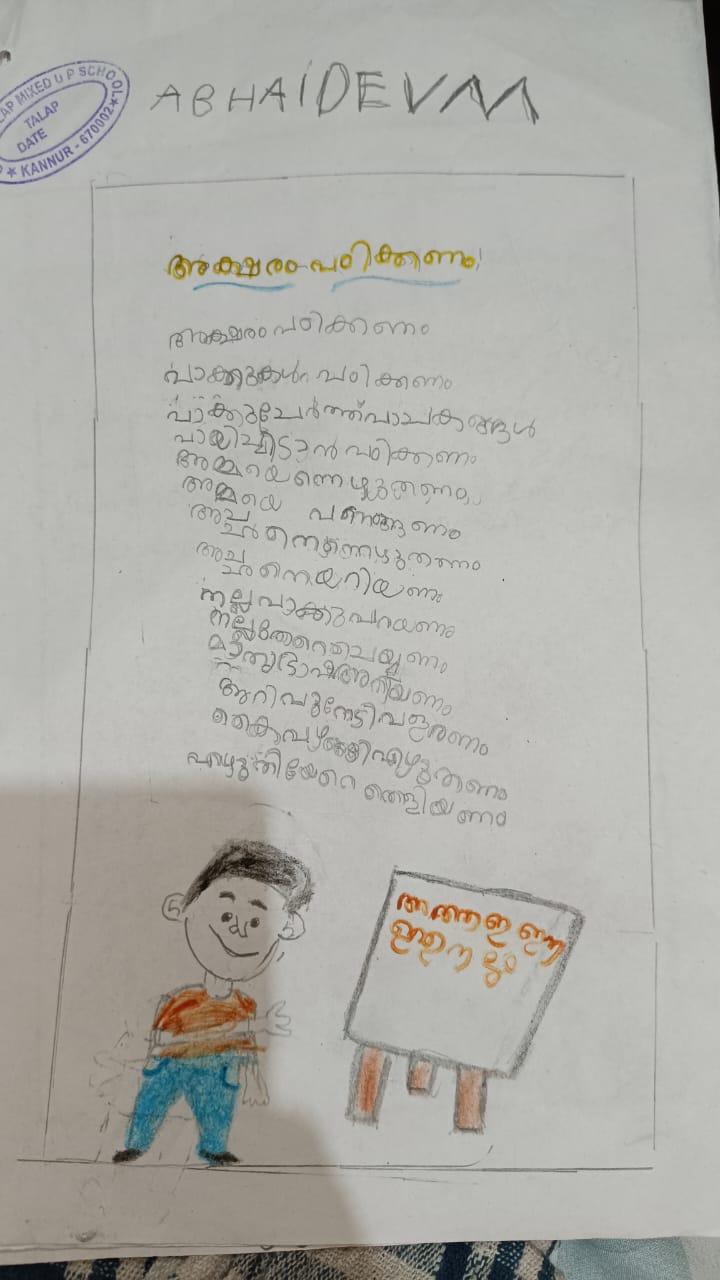 TALAP MIXED U P SCHOOL
TALAP
DATE
★ KANNUR - 670002 ★
ABHAIDEV M
അക്ഷരം പഠിക്കണം!
അക്ഷരം പഠിക്കണം
വാക്കുകൾ പഠിക്കണം
വാക്കുചേർത്ത് വാചകങ്ങൾ
വായിച്ചീടാൻ പഠിക്കണം
അമ്മയെന്നെഴുതണം
അമ്മയെ വണങ്ങണം
അച്ഛനെന്നെഴുതണം
അച്ഛനെയറിയണം
നല്ലവാക്കുപറയണം
നല്ലതേറെചെയ്യണം
മാതൃഭാഷഅറിയണം
അറിവുനേടിവളരണം
കൈവഴങ്ങിഎഴുതണം
എഴുതിയേറെ തെളിയണം
അ ആ ഇ ഈ